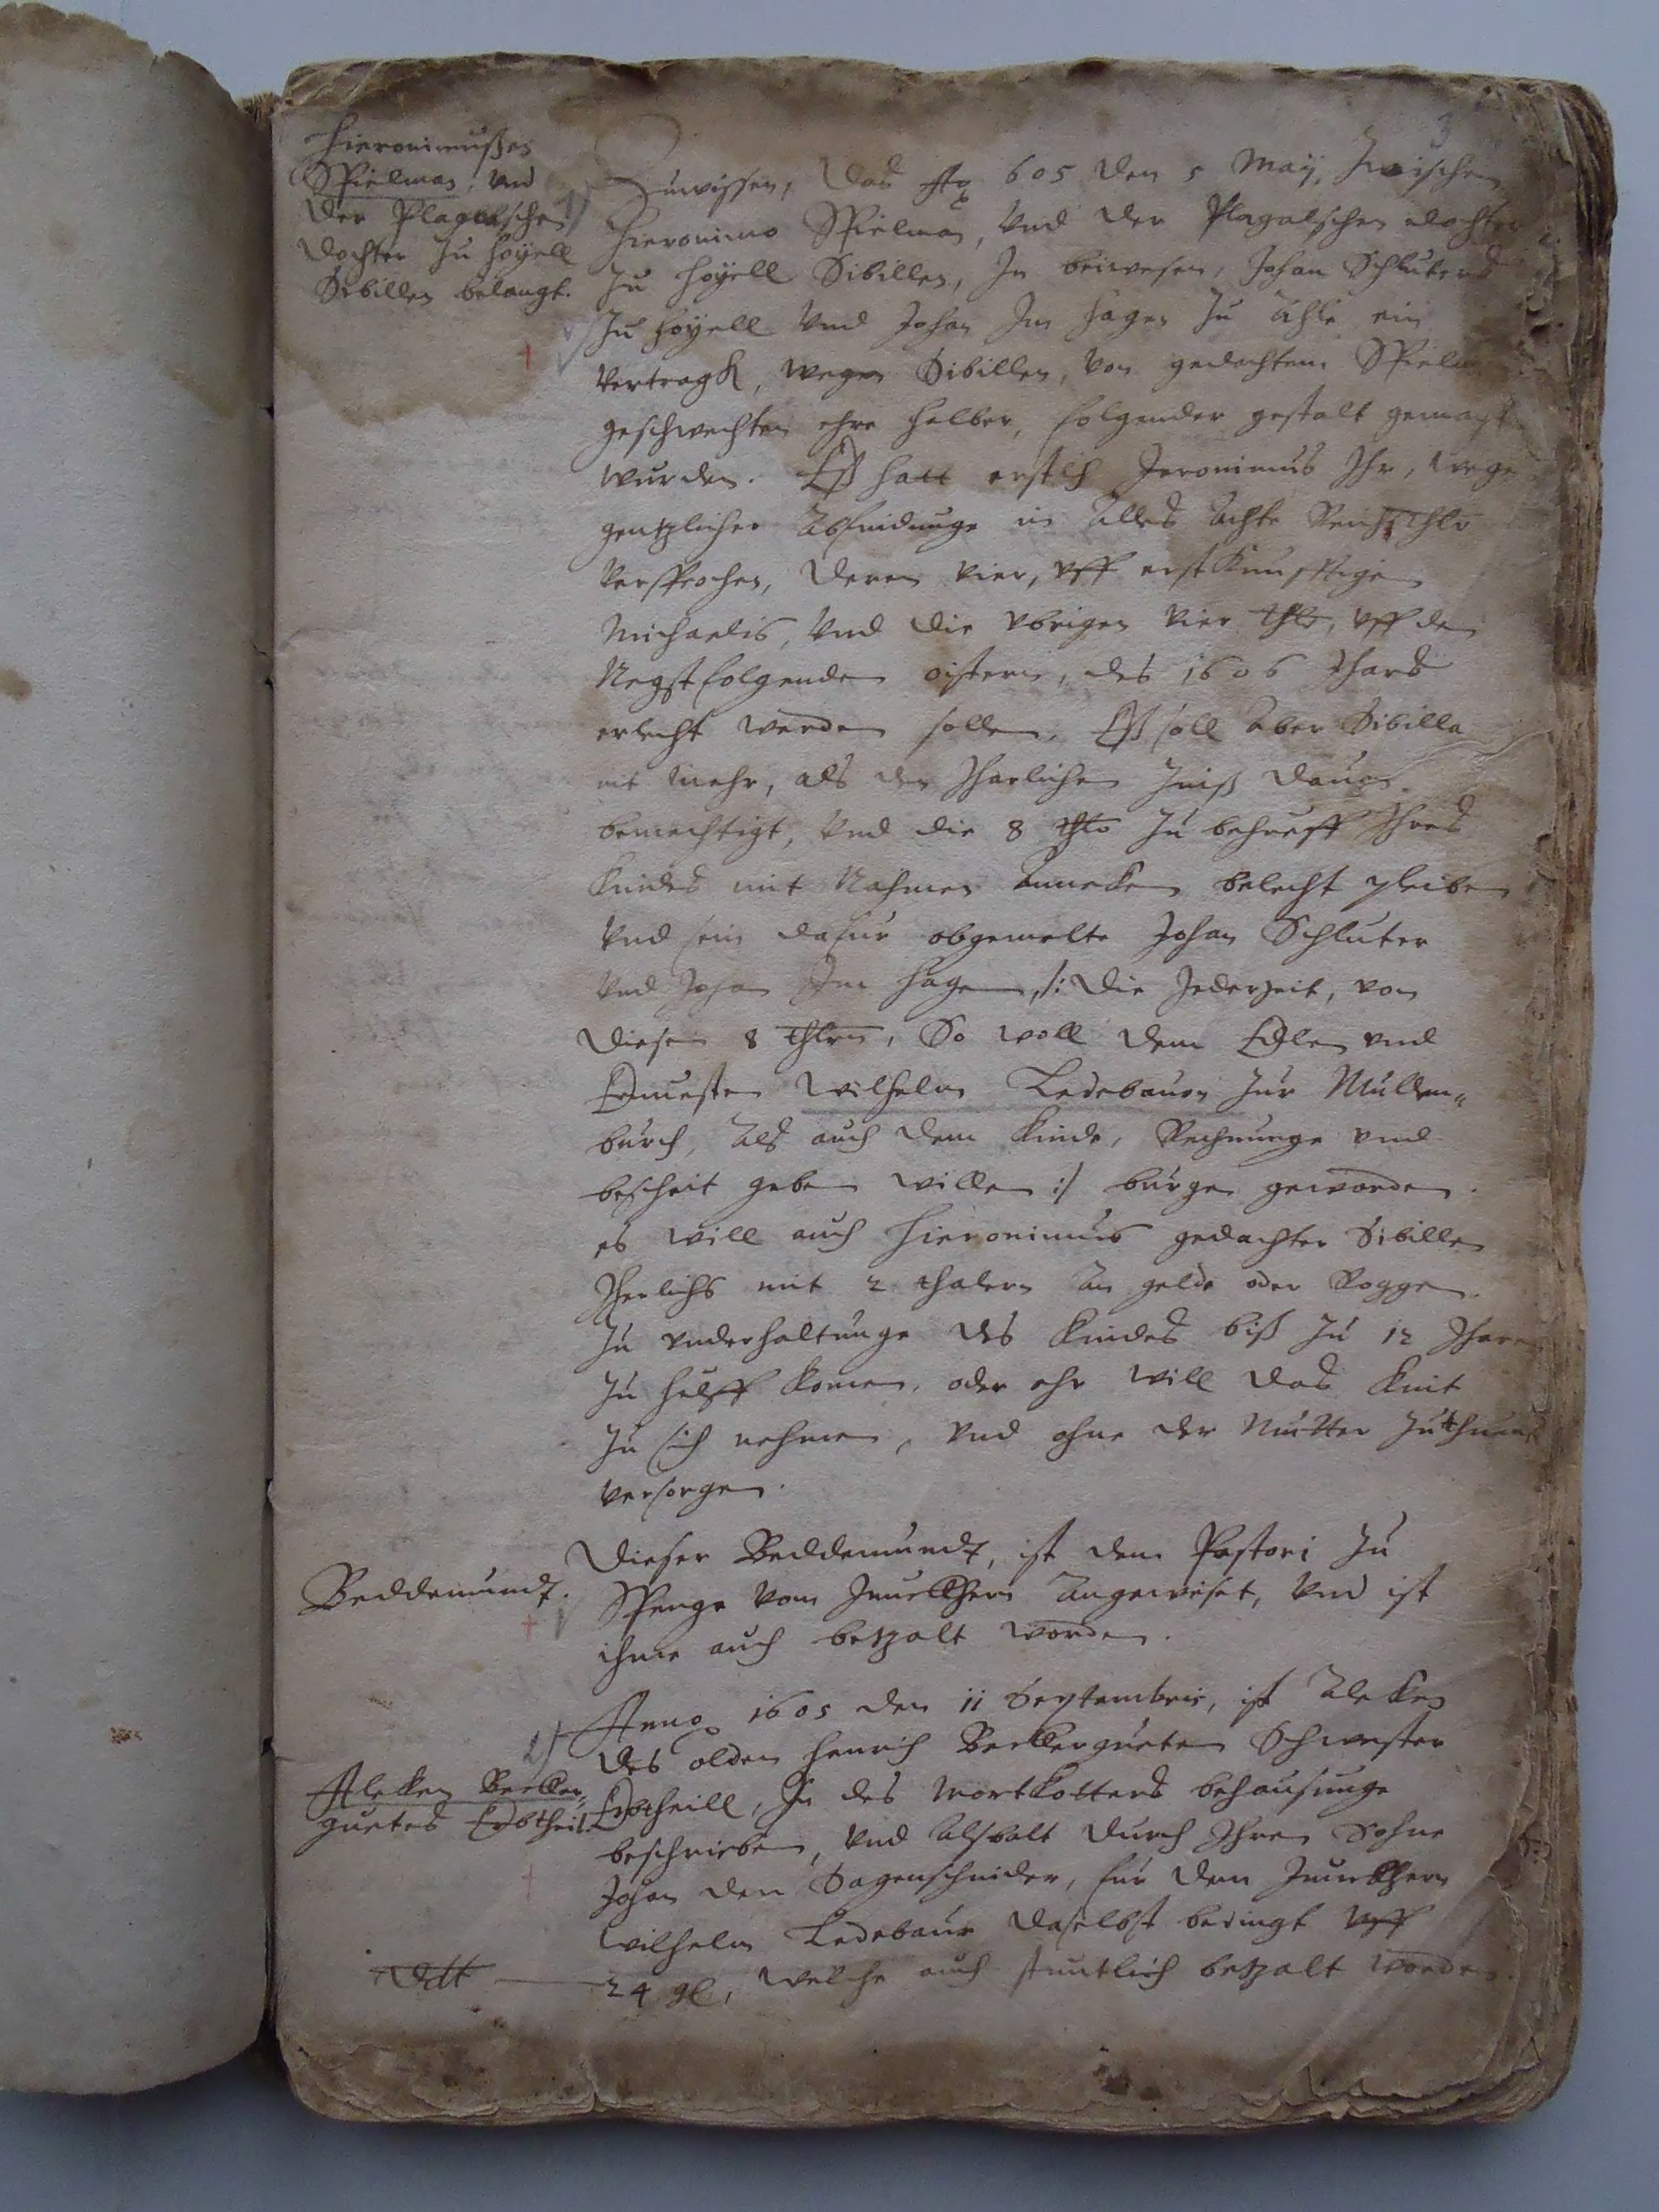 Hieronimußes
Spielman, vnd
der Plagalschen
dochter zu Hoyell
Sibillen belangt.
Zuwissen, das Ao 605 den 5 Maij, Zwischen
Hieronimo Spielman, vnd der Plagalschen dochter
zu Hoyell Sibillen, In beiwesen, Johan Schluters
zu Hoyell vnd Johan Im Hagen zu ein
vertragh, wegen Sibillen, von gedachtem Spielm
geschwechten ehre halber, folgender gestalt gemacht
wurden. Eß hatt erstlich Jeronimus Ihr, wege
gentzlicher Abfindunge in Alles Achte Reichsthlr
versprochen, deren vier, vff erstkunfftigen
Michaelis, vnd die vbrigen vier thlr, vff den
Negstfolgenden oistern, des 1606 Jhars
erlecht werden sollen. Eß soll Aber Sibilla
nit mehr, als den Jharlichen Zinß dauon
bemechtigt, vnd die 8 thlr zu behueff Ihres
Kindes mit Nahmen Anneken belecht pleiben
vnd sein dafur obgemelte Johan Schluter
vnd Johan Im Hagen, /: die Jederzeit, von
diesen 8 thlrn, So woll dem Edlen vnd
Ernuesten Wilhelm Ledebauren zur Mullen-
burch, Als auch dem Kinde, Rechnunge vnd
bescheit geben willen :/ burgen geworden.
es will auch Hieronimus gedachter Sibillen
Jherlichs mit 2 thalern An gelde oder Roggen
zu vnderhaltunge des Kindes biß zu 12 Jharen
zu hulff komen, oder ehr will das Kint
zu sich nehmen, vnd ohne der Mutter zuthuent
versorgen.
Beddemundt.
Dieser Beddemundt, ist dem Pastori zu
Spenge vom Junckhern Angewiset, vnd ist
ihme auch betzalt worden.
Aleken Becker-
guetes Erbtheil.
Anno 1605 den 11 Septembris, ist Aleken
des olden Henrich Beckerguetes Schwester
Erbtheill, In des Mortkotters behausunge
beschrieben, vnd Alsbalt durch Ihren Sohne
Johan den Sagenschnider, fur dem Junckhern
Wilhelm Ledebaur daselbst bedingt vff
24 gl, welche auch betzalt worden.